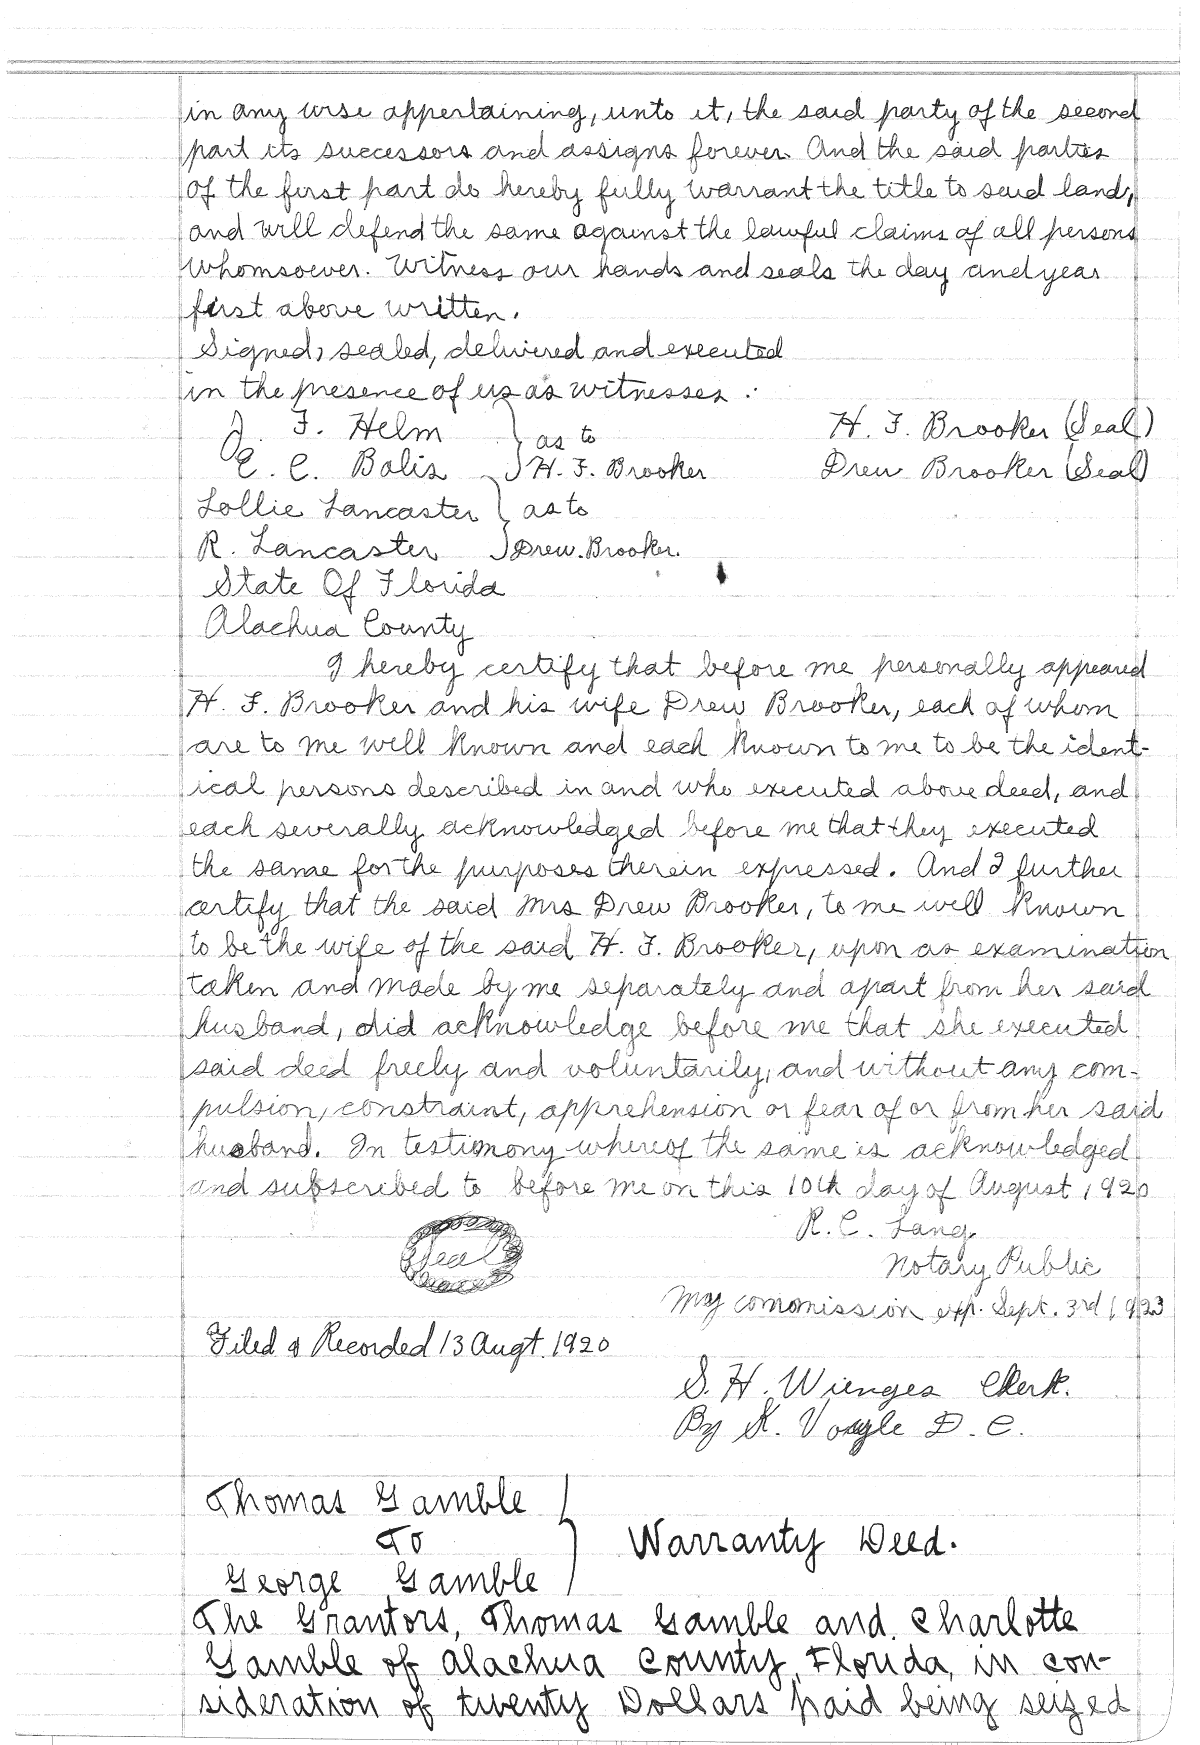 in any wise appertaining, unto it, the said party of the second
part its successors and assigns forever. And the said parties
of the first part do hereby fully warrant the title to said land,
and will defend the same against the lawful claims of all persons
whomsoever. Witness our hands and seals the day and year
first above written.
Signed, sealed, delivered and executed
in the presence of us as witnesses:
J. F. Helm } as to H. F. Brooker (Seal)
E. C. Bolis } H. F. Brooker Drew Brooker (Seal)
Lollie Lancaster } as to
R. Lancaster } Drew Brooker.
State Of Florida
Alachua County
I hereby certify that before me personally appeared
H. F. Brooker and his wife Drew Brooker, each of whom
are to me well known and each known to me to be the ident-
ical persons described in and who executed above deed, and
each severally acknowledged before me that they executed
the same for the purposes therein expressed. And I further
certify that the said Mrs Drew Brooker, to me well known
to be the wife of the said H. F. Brooker, upon as examination
taken and made by me separately and apart from her said
husband, did acknowledge before me that she executed
said deed freely and voluntarily, and without any com-
pulsion, constraint, apprehension or fear of or from her said
husband. In testimony whereof the same is acknowledged
and subscribed to before me on this 10th day of August 1920
R. C. Lang
Seal
Notary Public
My commission exp. Sept. 3rd 1923
Filed & Recorded 13 Augt. 1920
S. H. Wienges Clerk.
By K. D. C.
Thomas Gamble
To } Warranty Deed.
George Gamble
The Grantors, Thomas Gamble and Charlotte
Gamble of Alachua County, Florida, in con-
sideration of twenty Dollars paid being seized